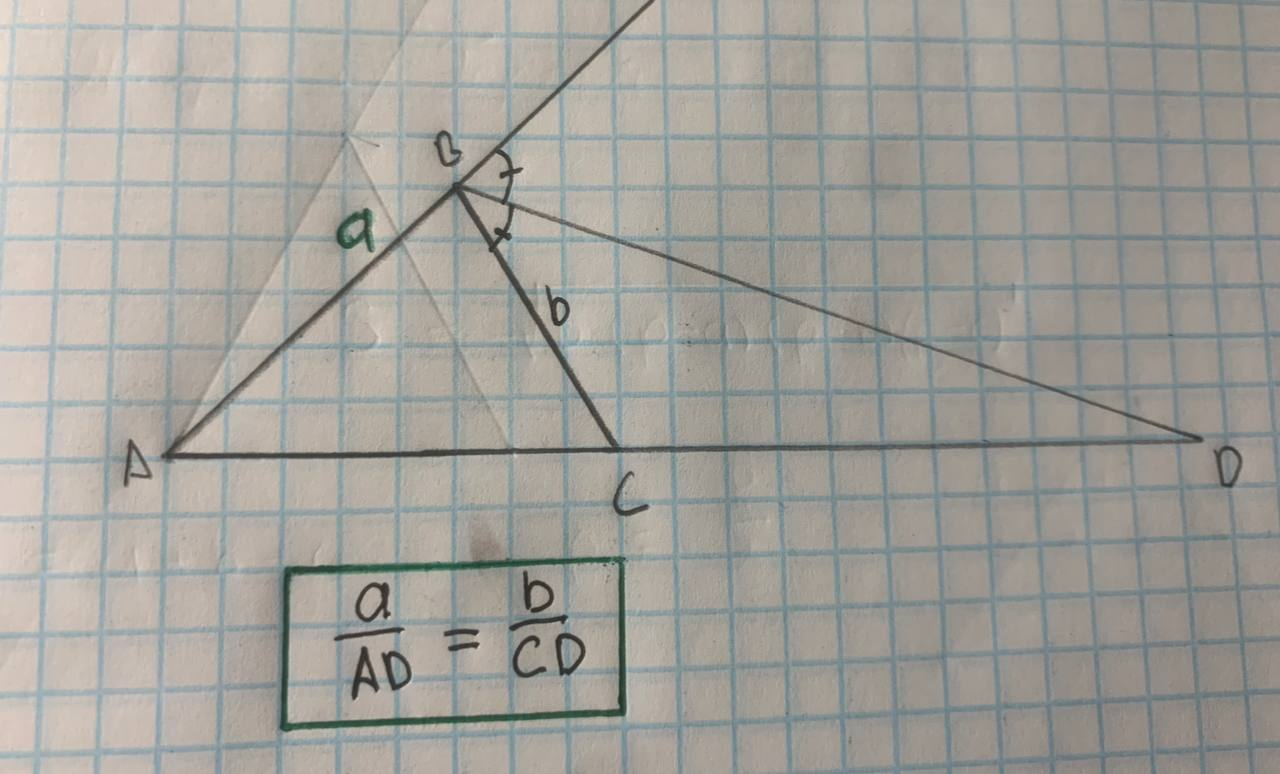 B
a
b
A
C
D
a/AD = b/CD